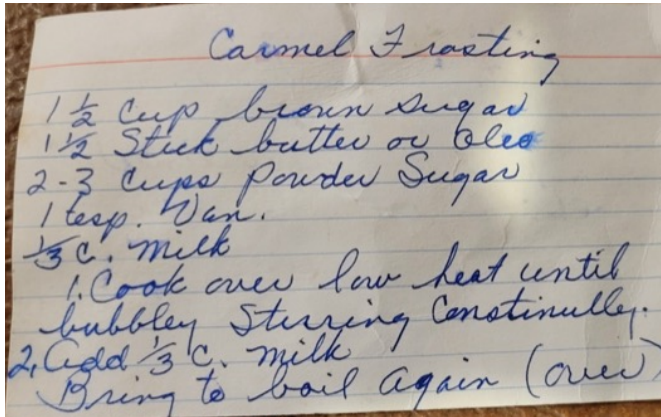 Carmel Frosting
1 1/2 Cup brown sugar
1 1/2 Stick butter or Oleo
2-3 Cups Powder Sugar
1 tesp. Van.
1/3 c. milk
1. Cook over low heat until
bubbley Stirring Constinully.
2. Add 1/3 c. milk
Bring to boil again (over)